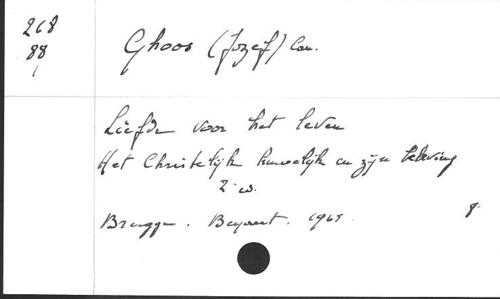 268
88
1
Ghoos (Jozef) Can.
Liefde voor het leven
Het Christelijk huwelijk en zijn beleving
2e ed.
Brugge. Beyaert. 1965.
8°